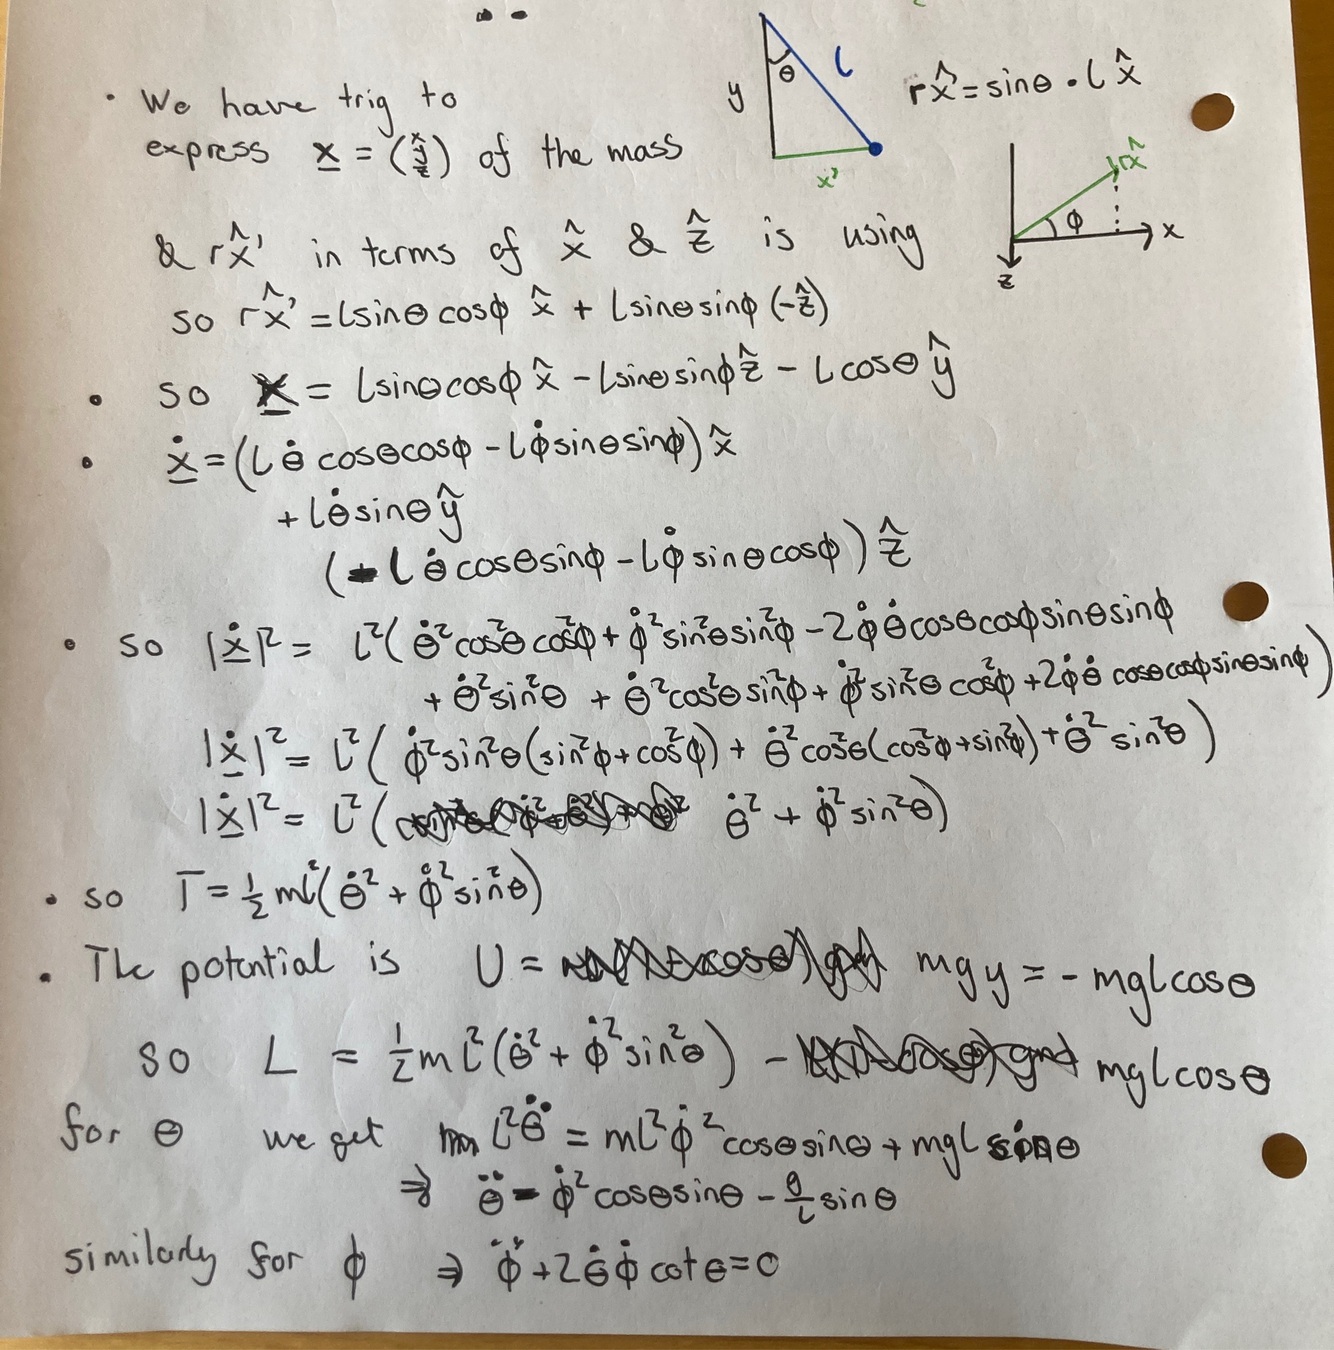 • We have trig to
express x̲ = (x y z) of the mass
y θ l x'
r x̂' = sinθ · l x̂
r x̂ φ x z
& r x̂' in terms of x̂ & ẑ is using
so r x̂' = l sinθ cosφ x̂ + l sinθ sinφ (-ẑ)
• so x̲ = l sinθ cosφ x̂ - l sinθ sinφ ẑ - l cosθ ŷ
• ẋ̲ = (l θ̇ cosθ cosφ - l φ̇ sinθ sinφ) x̂
+ l θ̇ sinθ ŷ
(- l θ̇ cosθ sinφ - l φ̇ sinθ cosφ) ẑ
• so |ẋ̲|² = l²( θ̇² cos²θ cos²φ + φ̇² sin²θ sin²φ - 2φ̇ θ̇ cosθ cosφ sinθ sinφ
+ θ̇² sin²θ + θ̇² cos²θ sin²φ + φ̇² sin²θ cos²φ + 2φ̇ θ̇ cosθ cosφ sinθ sinφ )
|ẋ̲|² = l²( φ̇² sin²θ (sin²φ + cos²φ) + θ̇² cos²θ (cos²φ + sin²φ) + θ̇² sin²θ )
|ẋ̲|² = l²( θ̇² + φ̇² sin²θ )
• so T = ½ m l² (θ̇² + φ̇² sin²θ)
• The potential is U = mgy = - mgl cosθ
so L = ½ m l² (θ̇² + φ̇² sin²θ) - mgl cosθ
for θ we get m l² θ̈ = m l² φ̇² cosθ sinθ + mgl sinθ
⇒ θ̈ = φ̇² cosθ sinθ - g/l sinθ
similarly for φ ⇒ φ̈ + 2θ̇ φ̇ cotθ = 0